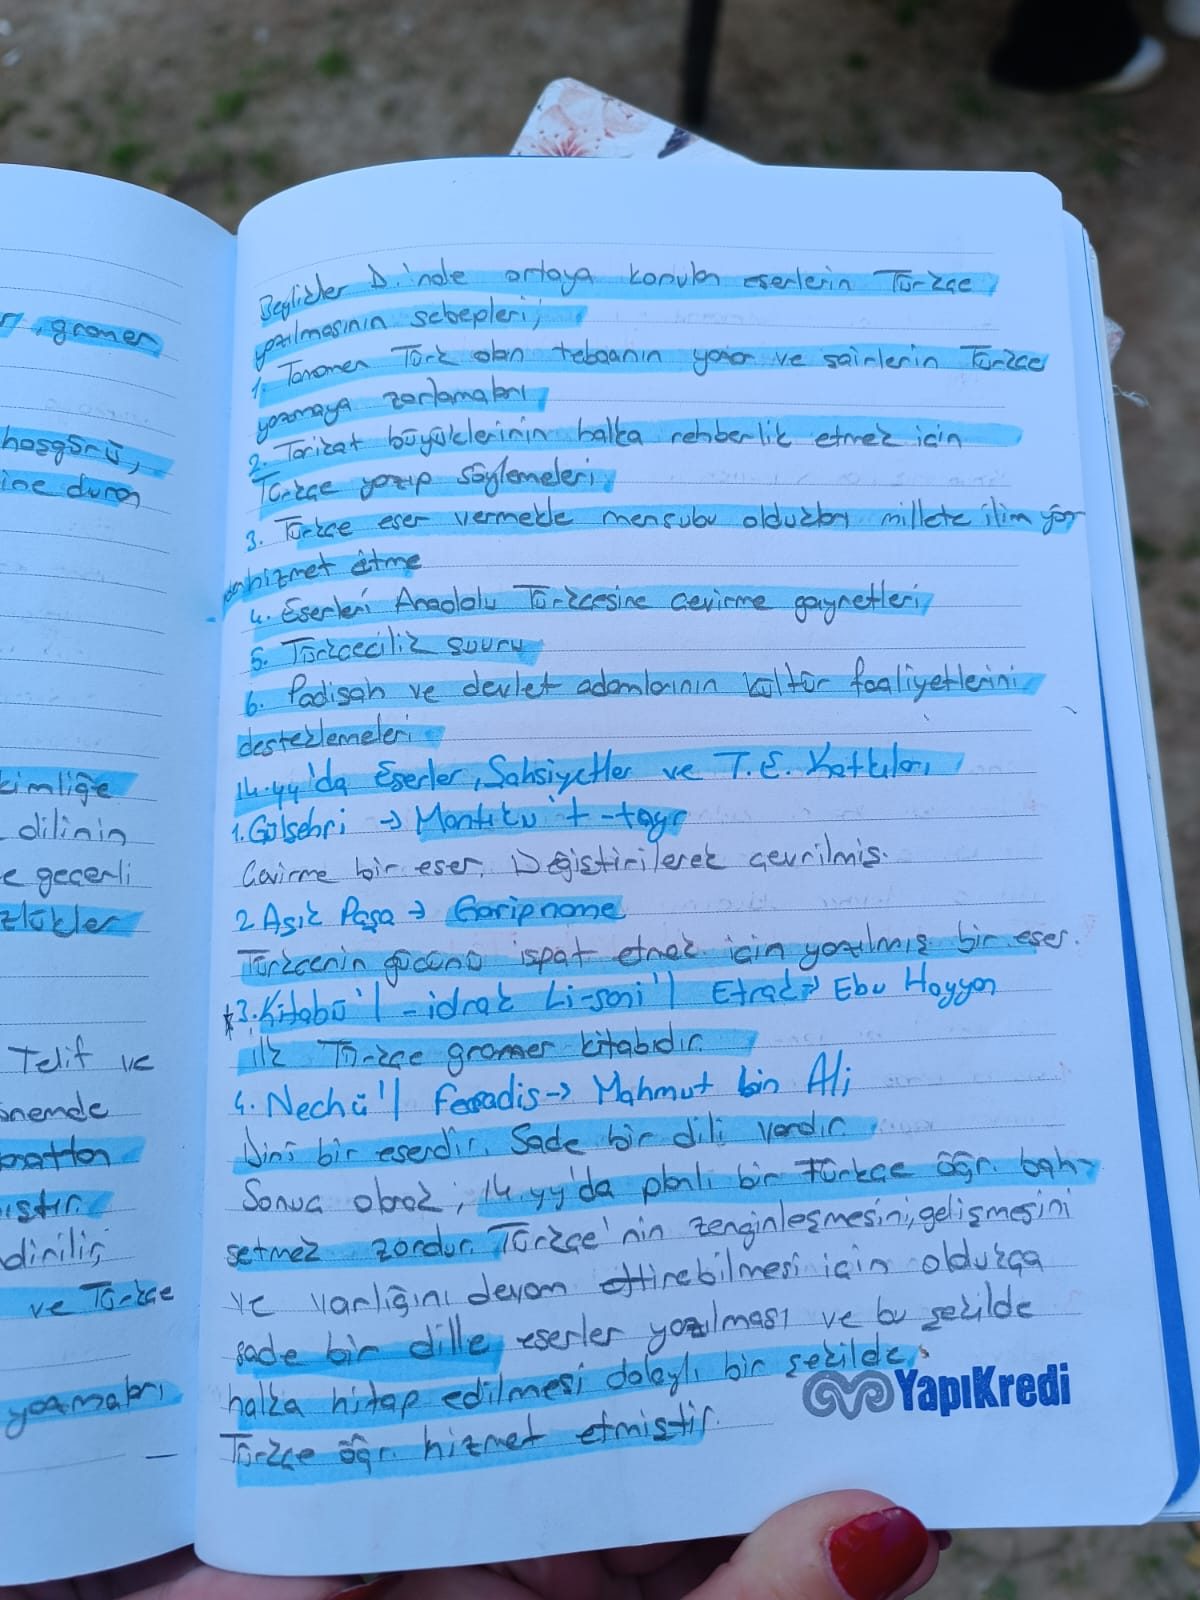 r, gramer
hoşgörü,
ine duran
kimliğe
dilinin
e geçerli
zlükler
Telif ve
önemde
baattan
iştir.
diriliş
ve Türkçe
yazmaları
Beylikler D.'nde ortaya konulan eserlerin Türkçe
yazılmasının sebepleri;
1. Tamamen Türk olan tebaanın yazar ve şairlerin Türkçe
yazmaya zorlamaları
2. Tarikat büyüklerinin halka rehberlik etmek için
Türkçe yazıp söylemeleri
3. Türkçe eser vermekle mensubu oldukları millete ilim yön
den hizmet etme
4. Eserleri Anadolu Türkçesine çevirme gayretleri
5. Türkçecilik şuuru
6. Padişah ve devlet adamlarının kültür faaliyetlerini
desteklemeleri
14.yy'da Eserler, Şahsiyetler ve T.E. Katkıları
1. Gülşehri → Mantıku't-tayr
Çevirme bir eser. Değiştirilerek çevrilmiş.
2 Aşık Paşa → Garipname
Türkçenin gücünü ispat etmek için yazılmış bir eser.
*3. Kitabü'l-idrak Li-sani'l Etrak → Ebu Hayyan
İlk Türkçe gramer kitabıdır.
4. Nechü'l Feradis → Mahmut bin Ali
Dinî bir eserdir. Sade bir dili vardır.
Sonuç olarak; 14.yy'da planlı bir Türkçe öğr. bah-
setmek zordur. Türkçe'nin zenginleşmesini, gelişmesini
ve varlığını devam ettirebilmesi için oldukça
sade bir dille eserler yazılması ve bu şekilde
halka hitap edilmesi dolaylı bir şekilde
Türkçe öğr. hizmet etmiştir.
YapıKredi